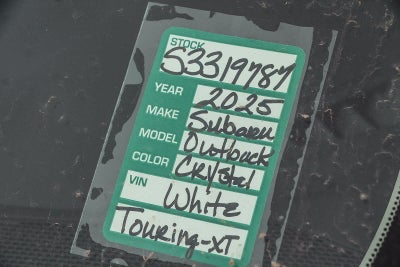 STOCK
S3319787
YEAR 2025
MAKE Subaru
MODEL Outback
COLOR Crystal
VIN White
Touring-XT